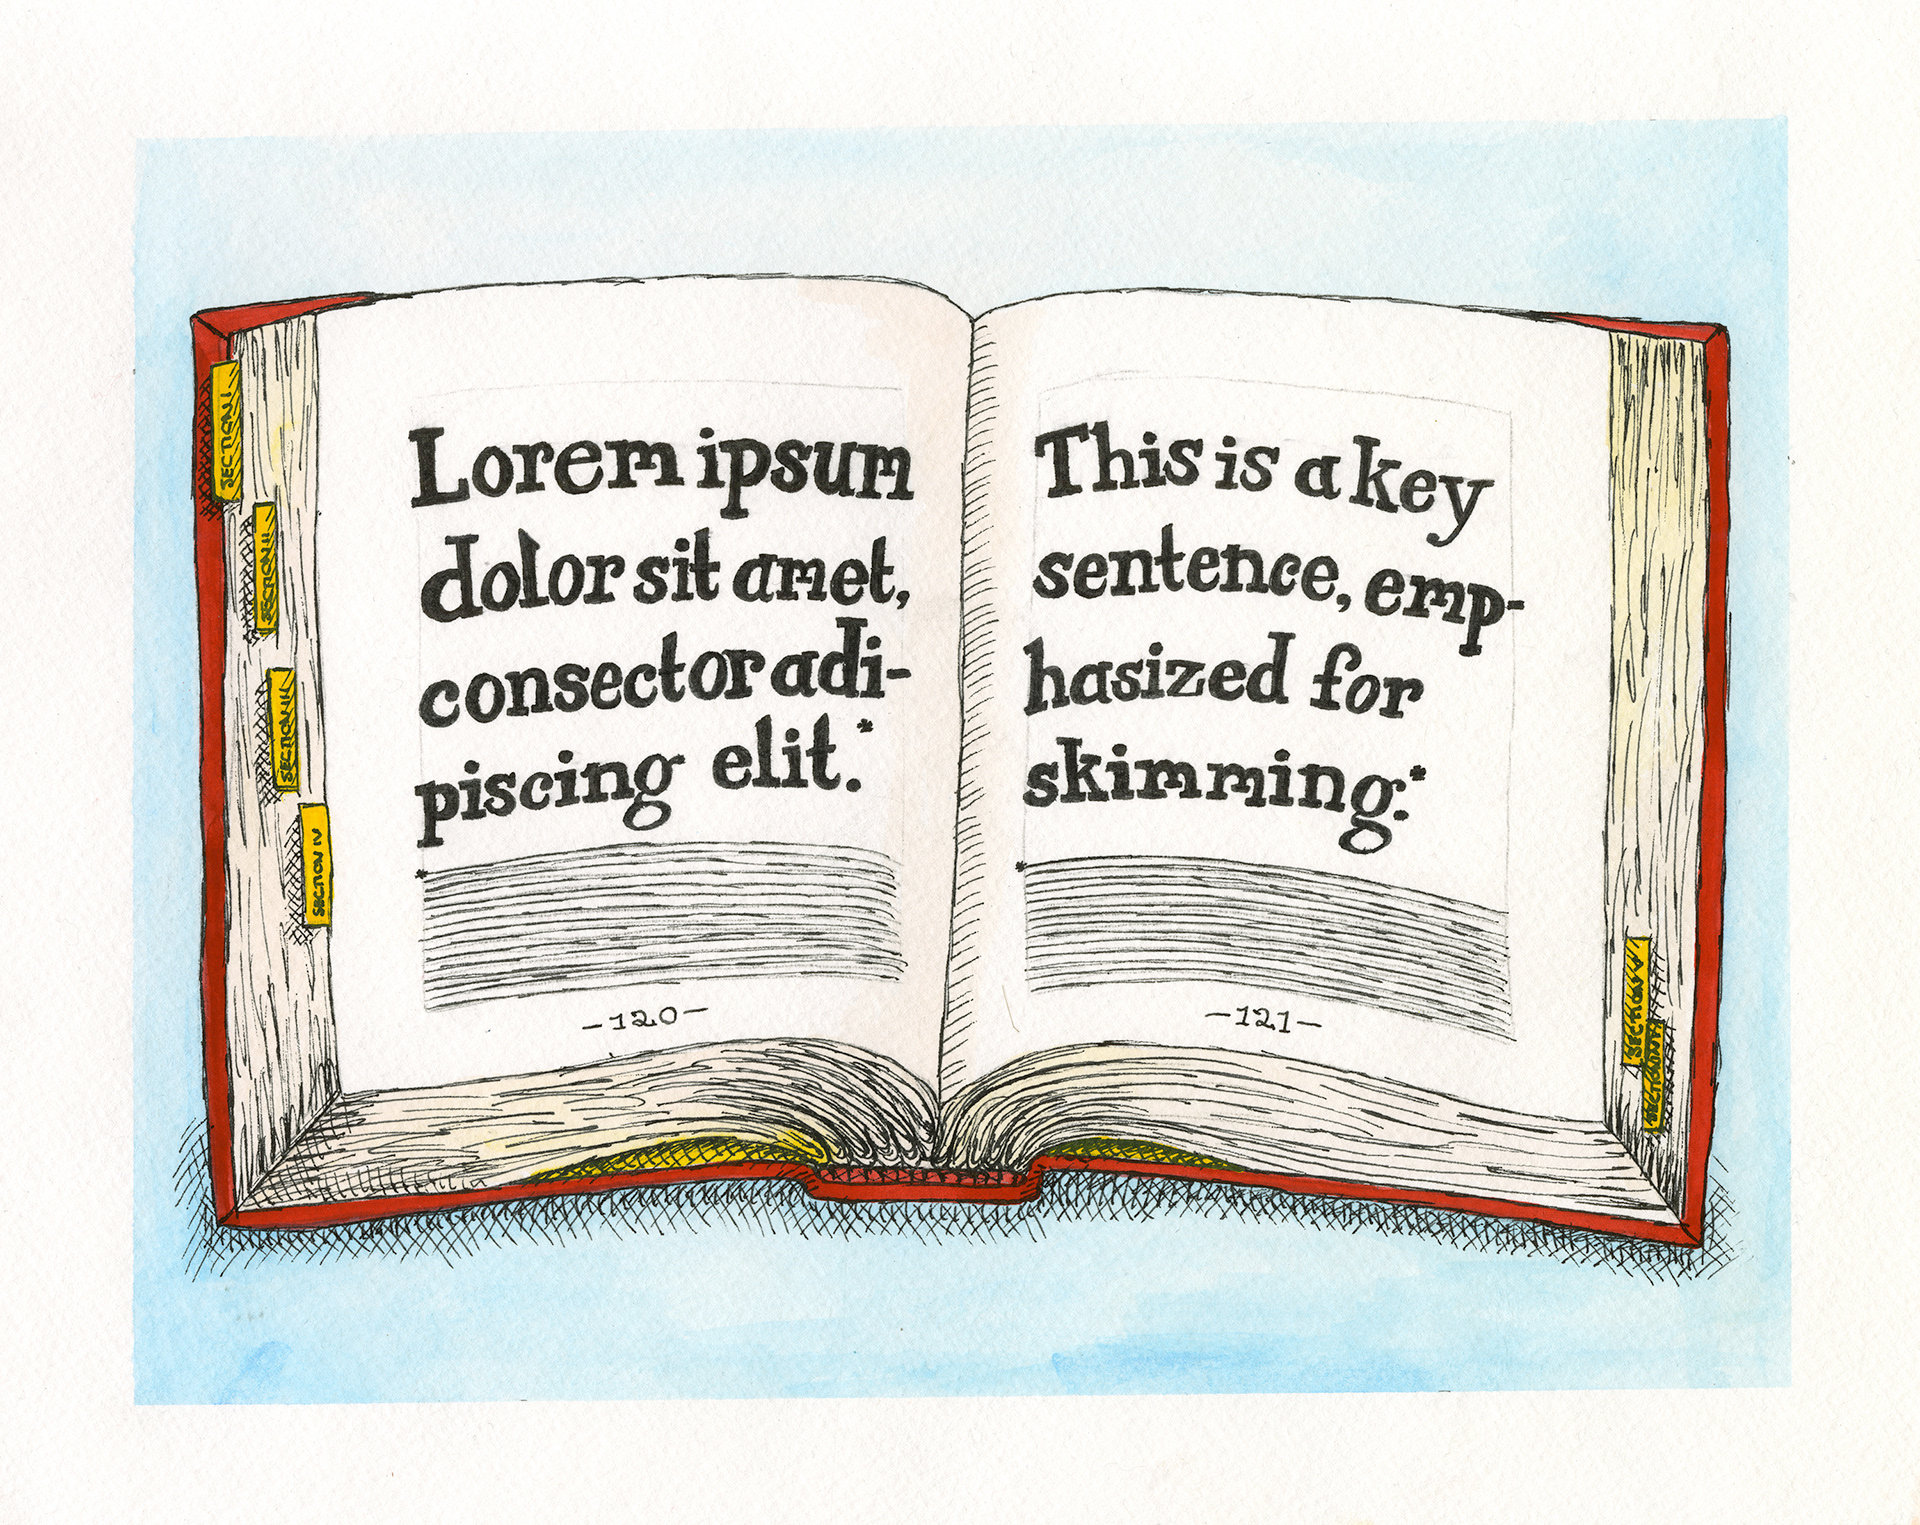 Lorem ipsum
dolor sit amet,
consector adi-
piscing elit.*
*
-120-
This is a key
sentence, emp-
hasized for
skimming.*
*
-121-
SECTION I
SECTION II
SECTION III
SECTION IV
SECTION V
SECTION VI